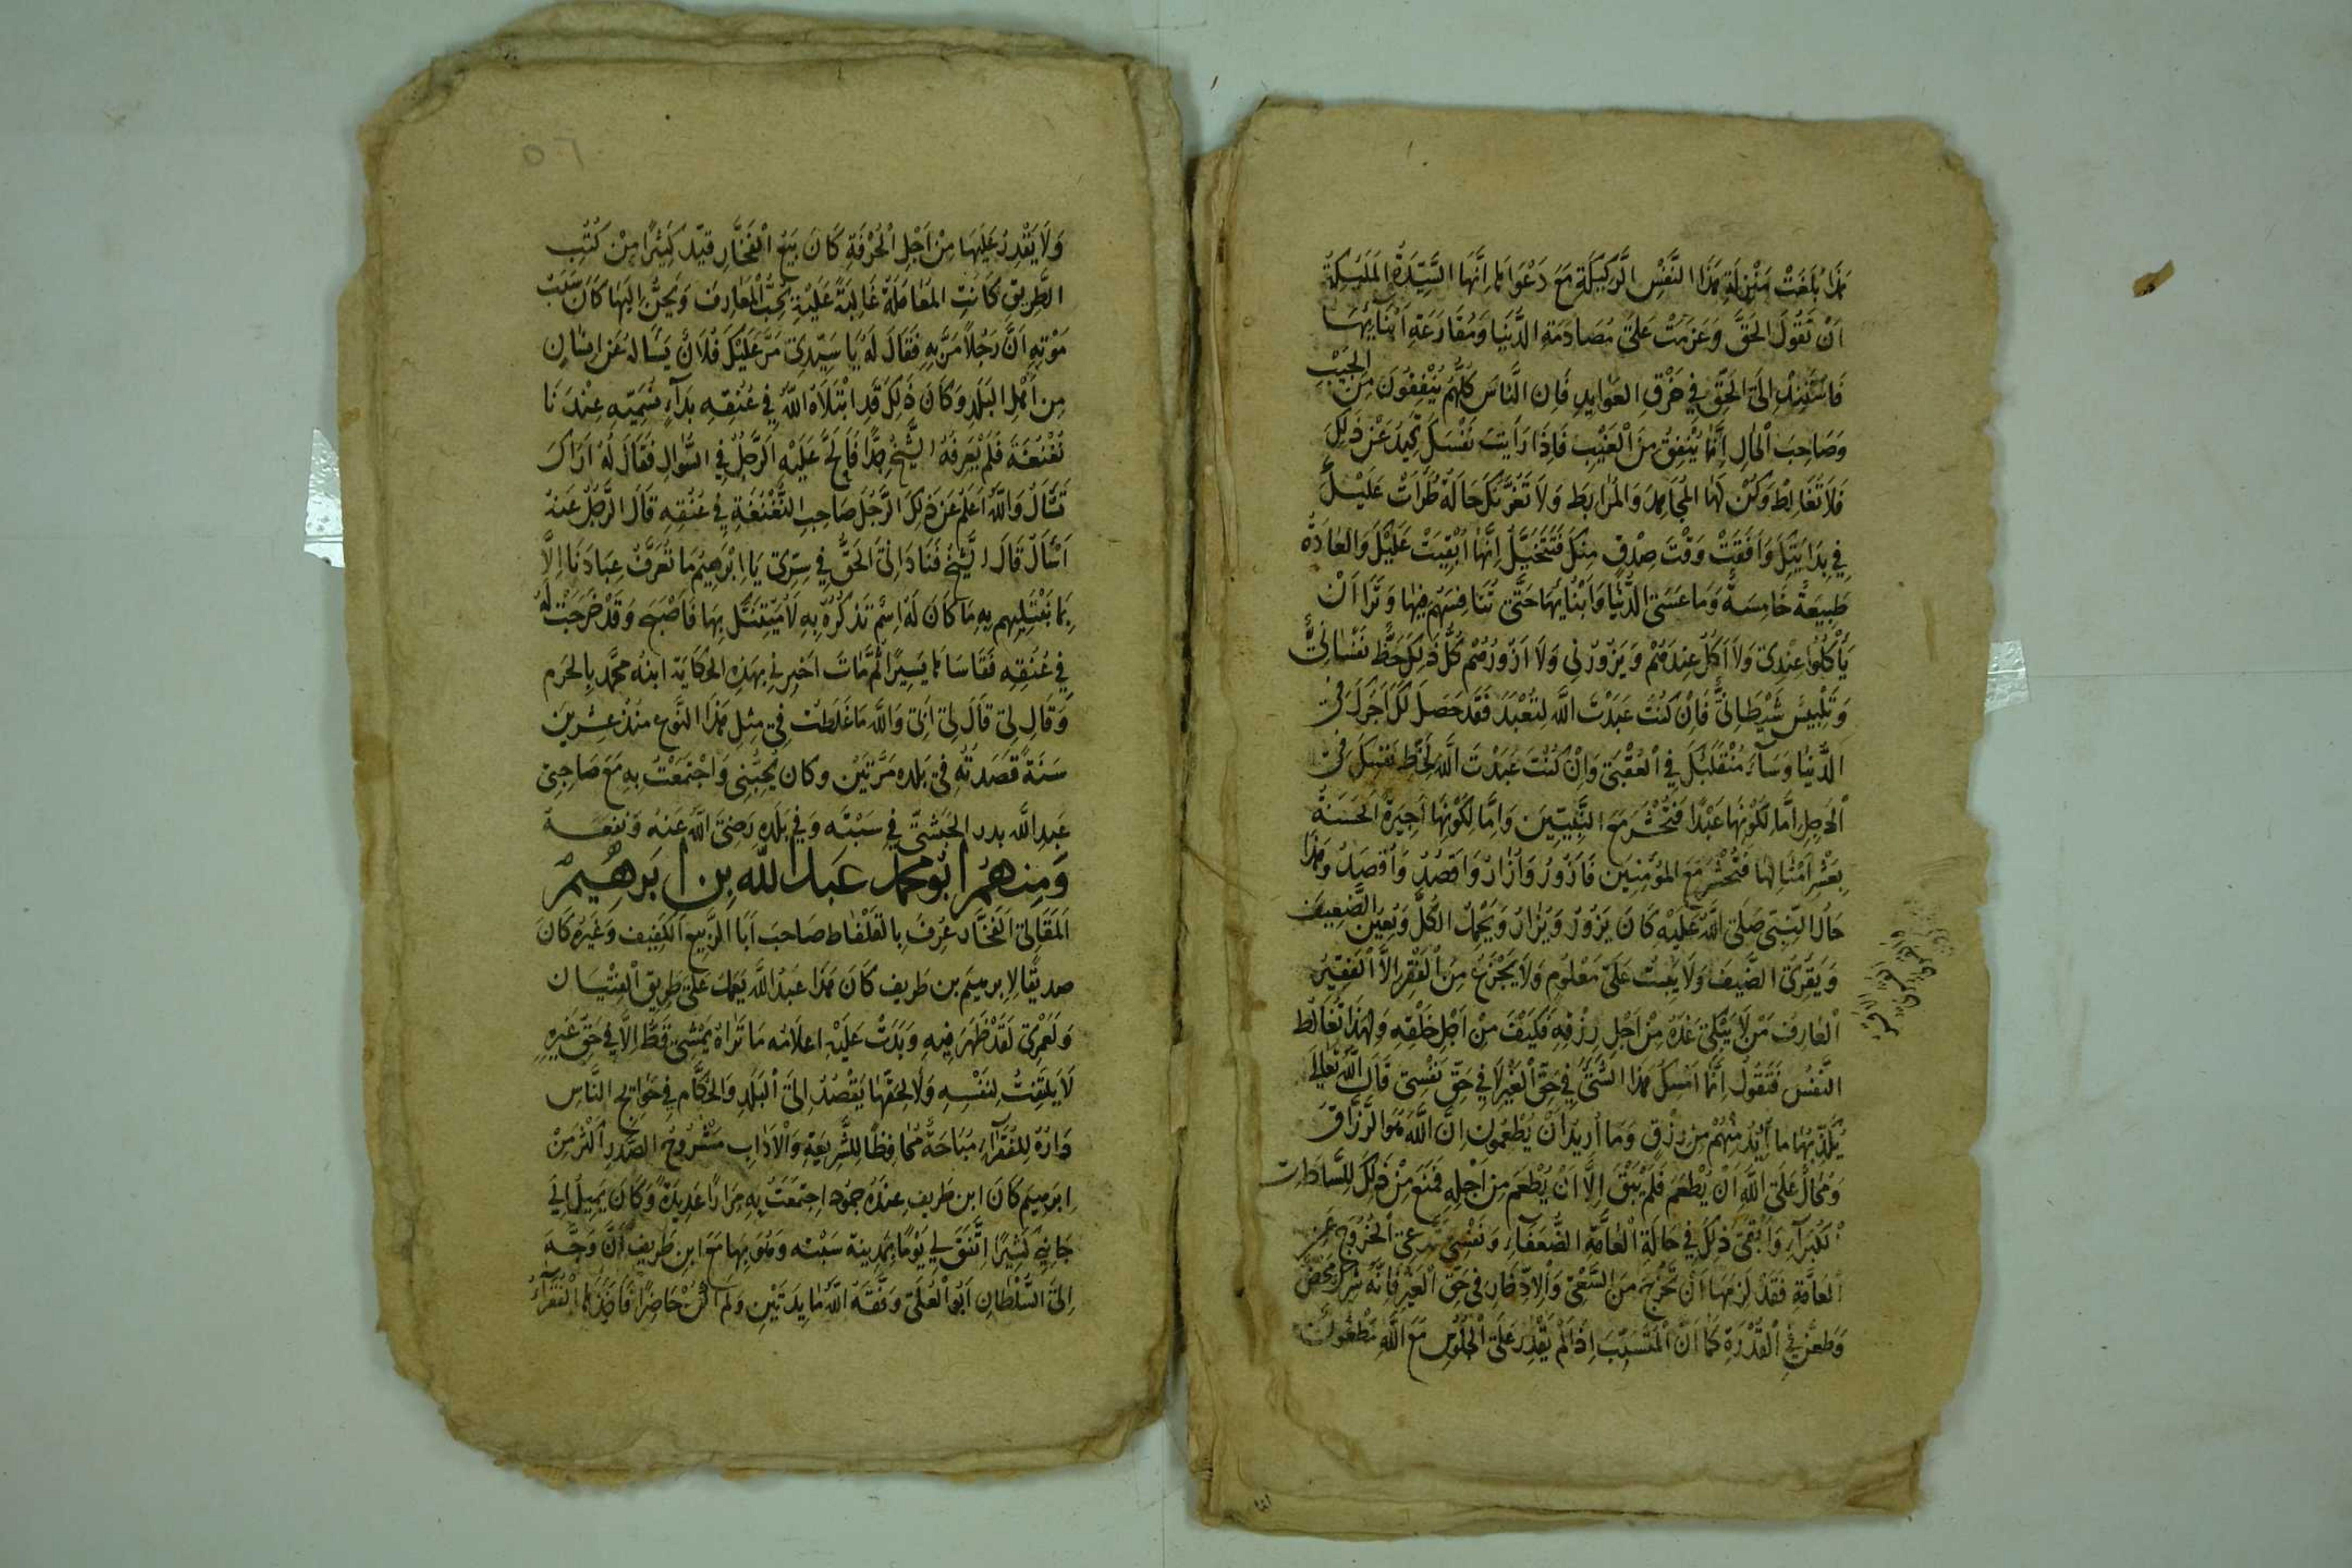 هَذَا بَلَغَتْ مَنْزِلَة هَذَا النَّفْسِ الرَّكِيكَةِ مَعَ دَعْوَاهَا اِنَّهَا السَّيِّدَةُ المَلِيكَةُ
اَنْ تَقُولَ الحَقَّ وَعَزَمْتُ عَلَى مُصَادَمَةِ الدُّنْيَا وَمُقَارَعَةِ اَبْنَائِهَا
فَاسْتَنِدْ اِلَى الحَقِّ فِي خَرْقِ العَوَايِدِ فَاِن النَّاسَ كُلَّهُمْ يُنْفِقُونَ مِنَ الجَيْبِ
وَصَاحِبَ الْحَالِ اِنَّمَا يُنْفِقُ مِنَ الْغَيْبِ فَاِذَا رَاَيتَ نَفْسَكَ تَحِيدُ عَنْ ذَلِكَ
فَلَا تُغَالِطْ وَكُنْ لَهَا المُجَاهِدَ وَالمُرَابِطَ وَلَا تَغُرَّنَّكَ حَالَةٌ طَرَاَتْ عَلَيْكَ
فِي بِدَايَتِكَ وَافَقَتْ وَقْتَ صِدْقٍ مِنْكَ فَتَتَخَيَّلُ اِنَّهَا اُبْقِيَتْ عَلَيْكَ وَالعَادَةُ
طَبِيعَةٌ خَامِسَةٌ وَمَا عَسَى الدُّنْيَا وَاَبْنَائِهَا حَتَّى تُنَافِسَهُمْ فِيهَا وَتَرَا اَنْ
يَأْكُلُوا عِنْدِى وَلَا اَكُلُ عِنْدَهُمْ وَيَزُورُنِي وَلَا اَزُورُهُمْ كُلُّ ذَلِكَ حَظٌّ نَفْسَانِيٌّ
وَتَلْبِيسٌ شَيْطَانِيٌّ فَاِنْ كُنْتَ عَبَدْتَ اللَّه لِتُعْبَدَ فَقَد حَصَلَ لَكَ اَجْرُكَ فِى
الدُّنْيَا وَسَآءَ مُنْقَلَبُكَ فِي الْعُقْبَى وَاِنْ كُنْتَ عَبَدْتَ اللَّهَ لِحَظِّ نَفْسِكَ فِى
الاَصِلِ اِمَّا لِكَوْنِهَا عَبْدًا فَتُحْشَرَ مَعَ النَّبِيِّينَ وَاِمَّا لِكَوْنِهَا اَجِيرَةً الحَسَنَةُ
بِعَشْرِ اَمْثَالِهَا فَتُحْشَرَ مَعَ المُؤْمِنِينَ فَازُورُ وَاُزَارُ وَاقصُدُ وَاُقصَدُ وَهَذَا
حَالُ النَّبِىِّ صَلَى اللَّهُ عَلَيْهِ كَانَ يَزُورُ وَيُزَارُ وَيَحْمِلُ الكَلَّ وَيُعِينُ الضَّعِيفَ
وَيَقْرِىُ الضَّيفَ وَلَا يَبِيتُ عَلَى مَعْلُومٍ وَلَا يَجْزَعُ مِنَ الْفَقْرِ اِلَّا الْفَقِيرُ
الْعَارِفُ مَنْ لَا يَبْكِى غَدَهُ مِنْ اَجْلِ رِزْقِهِ فَكَيْفَ مِنْ اَجْلِ خَلْقِهِ وَلِهَذَا تُغَالِطُ
النَّفسُ فَتَقُولُ اِنَّمَا اَمْسِكُ هَذَا الشَّيْءَ فِي حَقِّ الْغَيْرِ لَا فِي حَقِّ نَفْسِى قَالَ اللَّهُ تَعَالَى
يُكَذِّبُهَا مَا اُرِيْدُ مِنْهُمْ مِن رِزْقٍ وَمَا اُرِيدُ اَنْ يُطْعِمُونِ اِنَّ اللَّهَ هُوَ الرَّزَّاقُ
وَمُحَالٌ عَلَى اللَّهِ اَنْ يُطْعَمَ فَلَمْ يَبْقَ اِلَّا اَنْ يُطْعَمَ مِن اَجْلِهِ فَمَنَعَ مِنْ ذَلِكَ لِلسَّادَاتِ
الْكُبَرَآءِ وَاَبْقَى ذَلِكَ فِي حَالَةِ الْعَامَّةِ الضُّعَفَاءِ وَنَفْسِي تَدَّعِى الْخُرُوجَ عَنِ
الْعَامَّةِ فَقَدْ لَزِمَهَا اَنْ تَخْرُجَ مِنَ السَّعْىِ وَالْاِدِّخَارِ فِي حَقِّ الْغَيْرِ فَاِنَّهُ شِرْكٌ مَحْضٌ
وَطَعْنٌ فِي الْقُدْرَةِ كَمَا اَنَّ الْمُتَسَبِّبَ اِذَا لَمْ يَقْدِر عَلَى الْجُلُوسِ مَعَ اللَّهِ مَطْعُونٌ
٥٦
وَلَا يَقْدِرُ عَلَيْهَا مِنْ اَجْلِ الْحُرْفَةِ كَانَ يَبِيعُ الْفَخَّارِ قَيّد كَثِيرًا مِنْ كُتُبِ
الطَّرِيقِ كَانَتِ المُعَامَلَةُ غَالِبَةً عَلَيْهِ يُحِبُّ الْمَعَارِفَ وَيَحِنُّ اِلَيهَا كَانَ سَبَبُ
مَوْتِهِ اَنَّ رَجُلًا مَرَّ بِهِ فَقَالَ لَهُ يَا سَيِّدِى مَرَّ عَلَيْكَ فُلَانٌ يَسْاَلهُ عَن اِنسَانٍ
مِن اَهْلِ البَلَدِ وَكَانَ ذَلِكَ قَدِ ابْتَلَاهُ اللَّهُ فِي عُنُقِهِ بَدَآءٍ نُسَمِّيَه عِنْدَنَا
نُغْنُغَة فَلَمْ يَعرِفهُ الشَّيْخُ جِدًّا فَاَلَحَّ عَلَيْهِ الرَّجُلُ فِي السُّوَالِ فَقَالَ لَهُ اَرَاكَ
تَسْأَلُ وَاللَّهُ اَعْلَمُ عَن ذَلِكَ الرَّجُلِ صَاحِبِ النُّغْنُغَةِ فِي عُنُقِهِ قَالَ الرَّجُلُ عَنهُ
اَسْاَلُ قَالَ الشَّيْخُ فَنَادَانِىَ الحَقُّ فِي سِرِّى يَا اِبْرَهِيمُ مَا تُعَرَّفُ عِبَادَنَا اِلَّا
بِمَا نَبْتَلِيهِم بِهِ مَا كَانَ لَهُ اِسْمٌ تَذكُرُهُ بِهِ لَاُمِيتَنَّكَ بِهَا فَاَصْبَحَ وَقَدْ خَرَجَتْ لَهُ
فِي عُنُقِهِ فَقَاسَاهَا يَسِيرًا ثُمَّ مَاتَ اَخبرنِي بِهَذِهِ الحِكَايَة ابنهُ محمَّد بِالحَرَمِ
وَقَال لِى قَالَ لِى اَبِى وَاللَّهِ مَا غَلَطْتُ فِي مِثلِ هَذَا النَّوعِ مُنْذُ عِشْرِينَ
سَنَةً قَصَدتُهُ فِي بَلَدِه مَرَّتَيْنِ وكان يُحِبُّنِى وَاجْتَمَعْتُ بِهِ مَعَ صَاحِبِى
عَبدِ اللَّه بدر الحَبَشِىِّ فِي سَبْتَه وَفِي بَلَدِه رَضِىَ اللَّهُ عَنهُ وَنَفَعَه
وَمِنهُمْ اَبُو مُحمد عَبد اللَّه بِن اِبرَهِيمْ
المَقَالَى الفَخَّار عُرِفَ بِالقَلْفَاط صَاحَبَ اَبَا الرَّبِيعِ الكَفِيف وَغَيْرَهُ كَانَ
صديقًا لِابرهيم بن طَرِيفٍ كَانَ هَذَا عَبدُ اللَّهِ يَعمَلُ عَلَى طَرِيقِ الْفِتْيَان
وَلَعَمْرِى لَقَدْ ظَهَرَ فِيهِ وَبَدَتْ عَلَيْهِ اعلَامُه مَا تَرَاهُ يَمْشِى قَطُّ اِلَّا فِي حَقِّ غَيْرِهِ
لَا يَلتَفِتُ لِنَفْسِهِ وَلَا لِحَقِّهَا يَقْصُدُ اِلَى الْبَلَدِ وَالحُكَّامِ فِي حَوَايج النَّاسِ
دَارُهُ لِلفُقَرَآءِ مُبَاحَةٌ مُحَافِظًا لِلشَّرِيعَةِ وَالْآدَابِ مَشْرُوحُ الصَّدرِ اَكْثَر مِنْ
ابرهيم كَانَ ابن طَرِيف عِنْدَهُ جمُود اجتَمَعْتُ بِهِ مِرَارًا عَدِيدَةً وَكَانَ يَمِيلُ اِلَى
جَانِبِى كَثِيرًا اِتَّفَقَ لِي يَوْمًا بِمَدِينَة سَبْتَه وَهُوَ بِهَا مَعَ ابنِ طَرِيفٍ اَنْ وَجَّهَ
اِلَىَّ السُّلْطَانِ اَبُو الْعُلَى وَفَّقَهُ اللَّهُ مَايِدَتَيْنِ وَلَم اَكُنْ حَاضِرًا فَاَخَذَهَا الْفُقَرَآءُ